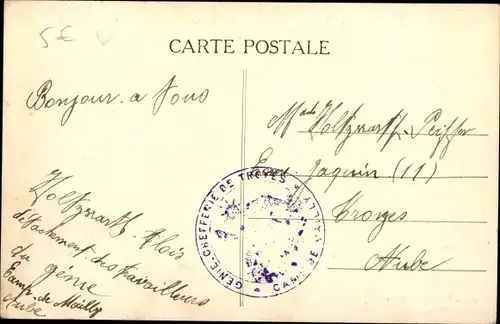 5€
CARTE POSTALE
Bonjour a Vous
Holtzwarth Alois
détachement des travailleurs
du génie
Camp de Mailly
Aube
Holtzwarth Peiffer
(11)
Troyes
Aube
GÉNIE-CHEFFERIE DE TROYES
CAMP DE MAILLY